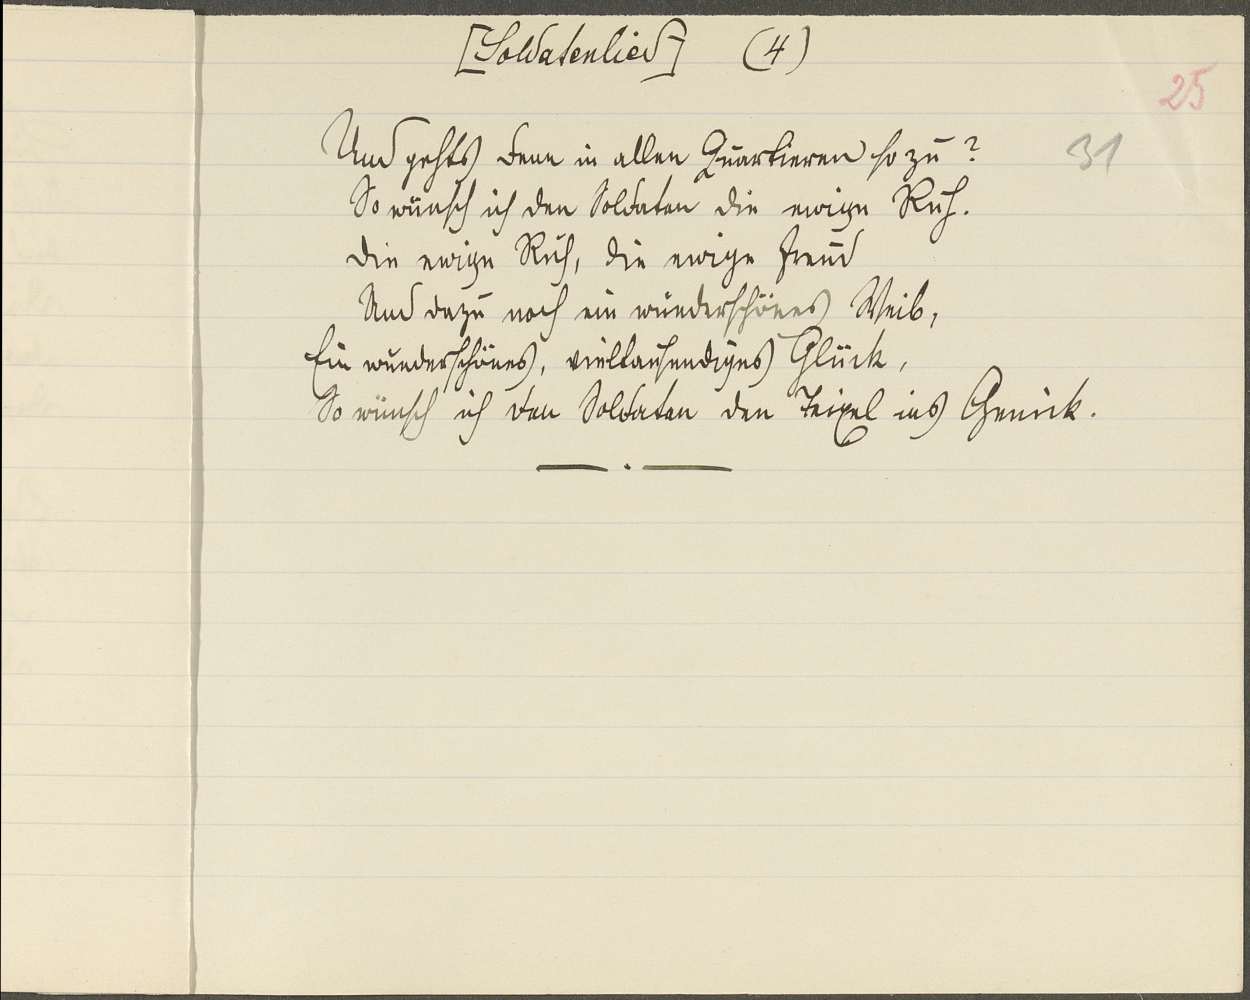 [Soldatenlied] (4)
25
Und gehts denn in allen Quartieren so zu? 31
So wünsch ich den Soldaten die ewige Ruh.
Die ewige Ruh, die ewige Freud
Und dazu noch ein wunderschönes Weib,
Ein wunderschönes, vieltausendiges Glück,
So wünsch ich den Soldaten den Teixel ins Genick.